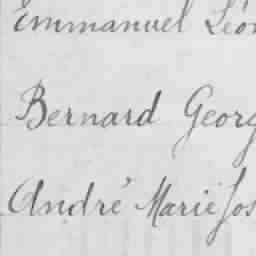 Emmanuel Léon
Bernard Georg
André Marie Jos